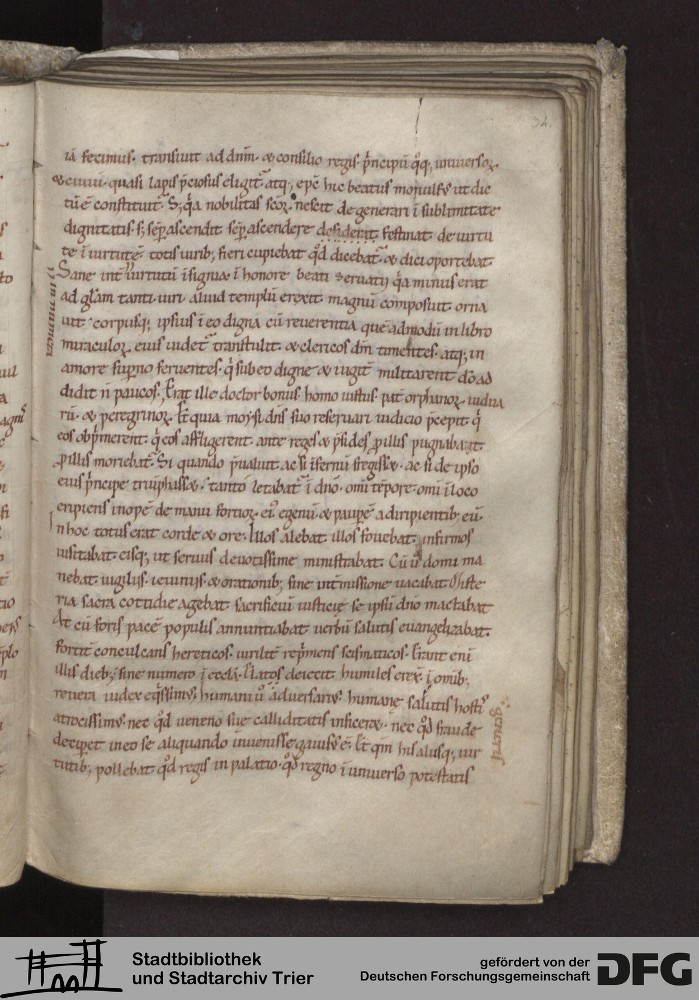 34.
iā fecimus. transiuit ad dn̄m. & consilio regis. p̄ncipū q̨q;, uniuersoꝝ
& ciuiū. quasi lapis p̄ciosus eligit᷑. atq;, ep̄c hic beatus monulfꝰ ut dic
tū ē constituit᷑. S; q̄a nobilitas scōꝝ nescit degenerari ī sublimitate
dignitatis. s; sēp ascendit sēp ascendere desiderat festinat de uirtu
te ī uirtutē. totis uirib; fieri cupiebat qd̄ dicebat᷑. & dici oportebat.
Sane int̄ uirtutū īsignia ī honore beati seruatij q̄a minus erat
ad gl̄am tanti uiri. aliud templū erexit magnū composuit. orna
uit corpusq;, ipsius ī eo digna cū reuerentia. que admodū in libro
miraculoꝝ eius uidet᷑. transtulit. & clericos dn̄m timentes. atq;, in
amore sup̄no feruentes. q̄ sub eo digne & iugit̄ militarent dō. ad
didit n̄ paucos. Erat ille doctor bonus. homo iustus. pat̄ orphanoꝝ uidua
rū. & peregrinoꝝ. Et quia moysi dn̄s suo reseruari iudicio p̄cepit q̄
eos obp̄merent. q̄ eos affligerent. ante reges & p̄sides ꝓ illis pugnabat.
ꝓ illis moriebat᷑. Si quando p̄ualuit. ac si īfernū fregisset. ac si de ipso
eius p̄ncipe triūphasset. tanto letabat᷑ ī dn̄o. omī tēpore. omī ī loco
eripiens inopē de manu fortioꝝ eiꝰ. egenū & paupeꝝ a diripientib; eū.
In hoc totus erat corde & ore. Illos alebat. illos fouebat. infirmos
uisitabat. eisq;, ut seruus deuotissime ministrabat. Cū u̇ domi ma
nebat. uigiliis. ieiuniis. & orationib; sine int̄missione uacabat. Miste
ria sacra cottidie agebat. sacrificiū iusticię se ipsū dn̄o mactabat
At cū foris pacē populis annuntiabat. uerbū salutis euangelizabat.
fortit̄ conculcans hereticos. uirilit̄ rep̄mens scismaticos. Erant eni
illis dieb; sine numero ī eccl̄a. Elatos deiecit. humiles erex̄. ī omib;
reuera iudex eq̄ssimꝰ. humani u̇ aduersariꝰ. humanę salutis hostis
generis
atrocissimꝰ. nec qd̄ ueneno suę calliditatis inficeret. nec qd̄ fraude
deciperet in eo se aliquando inuenisse gauisꝰ ē. Et qm̄ his aliisq;, uir
tutib; pollebat. qd̄ regis in palatio. qd̄ regno ī uniuerso potestatis
Stadtbibliothek
und Stadtarchiv Trier
gefördert von der
Deutschen Forschungsgemeinschaft
DFG